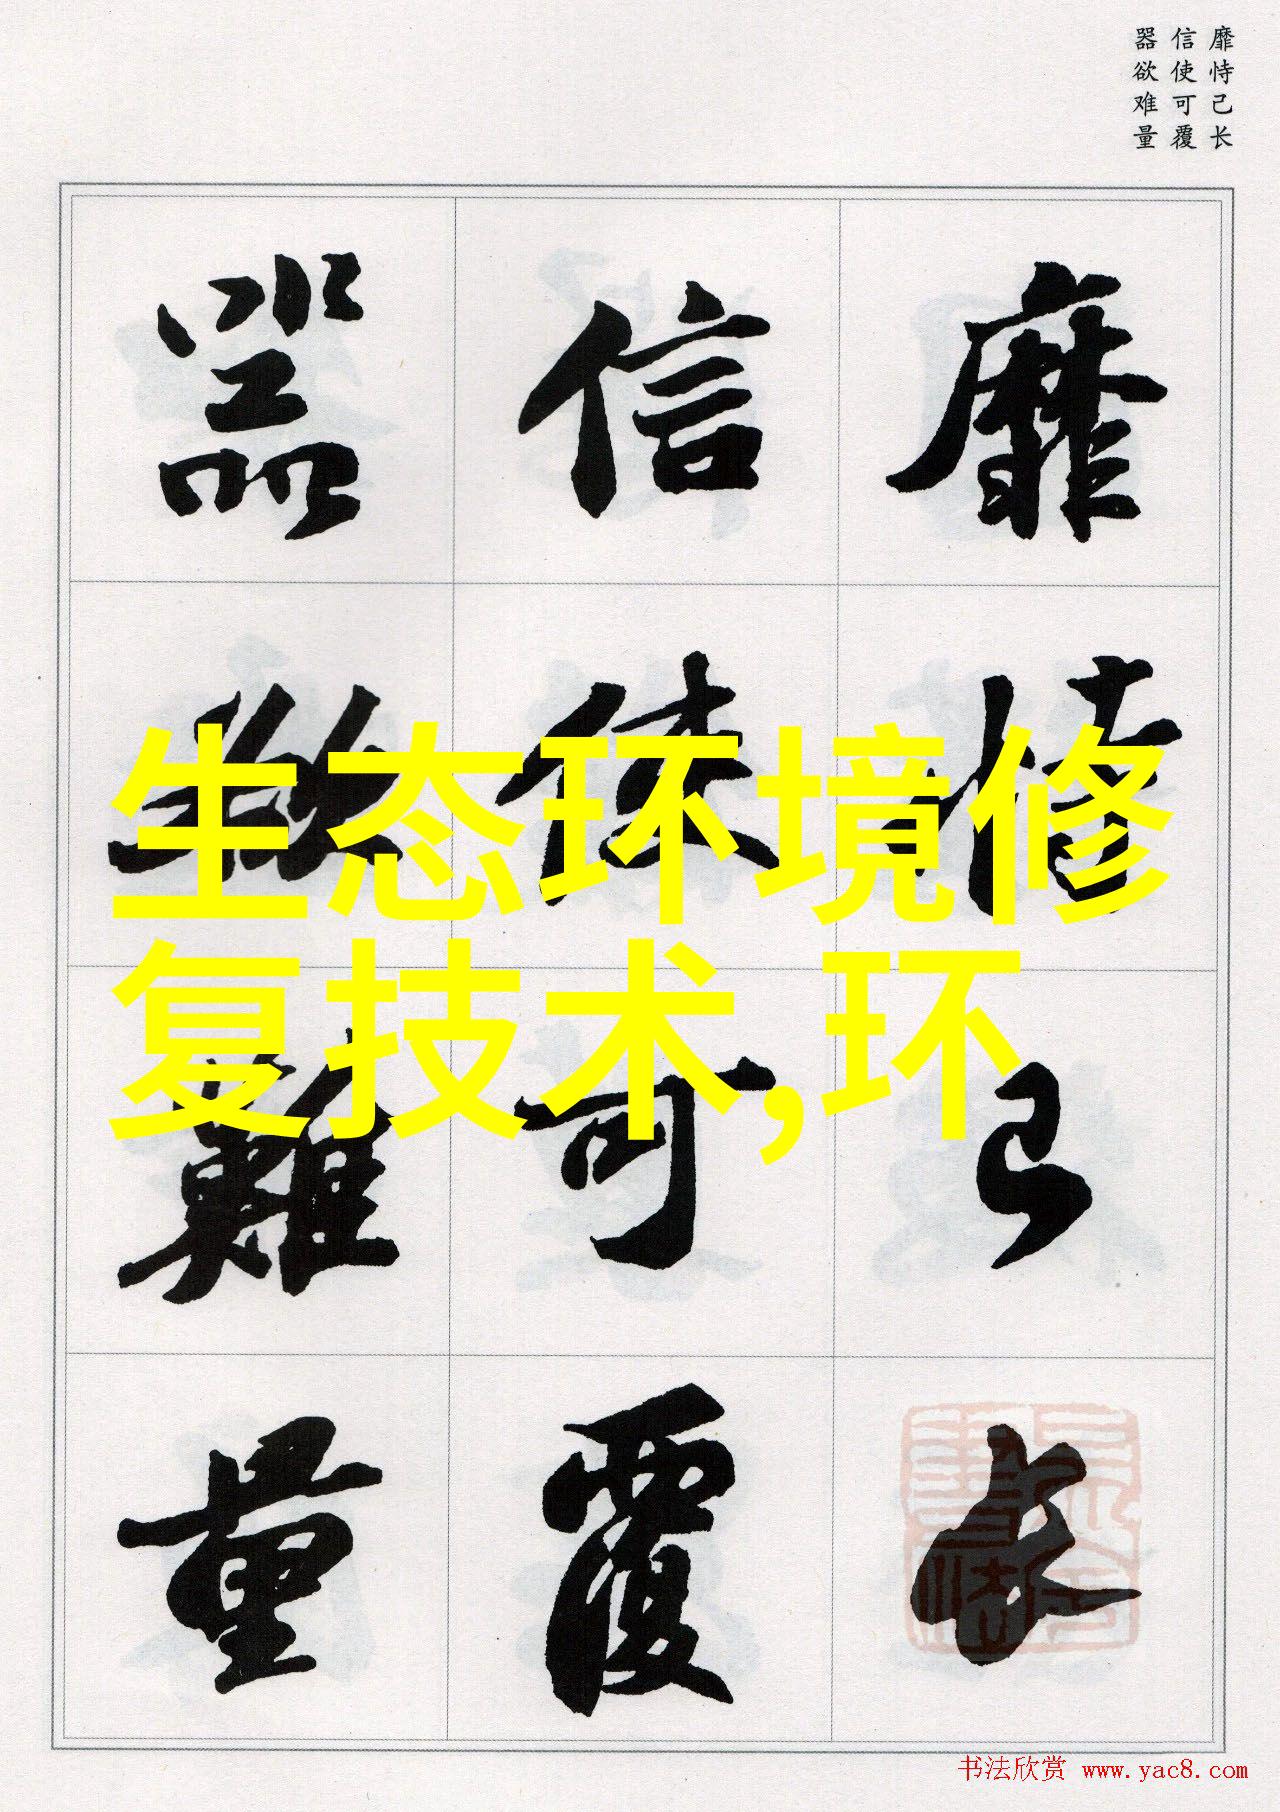 靡恃己长
信使可覆
器欲难量
靡恃己长
信使可覆
器欲難量
生态环境修
复技术,环
书法欣赏 www.yac8.com